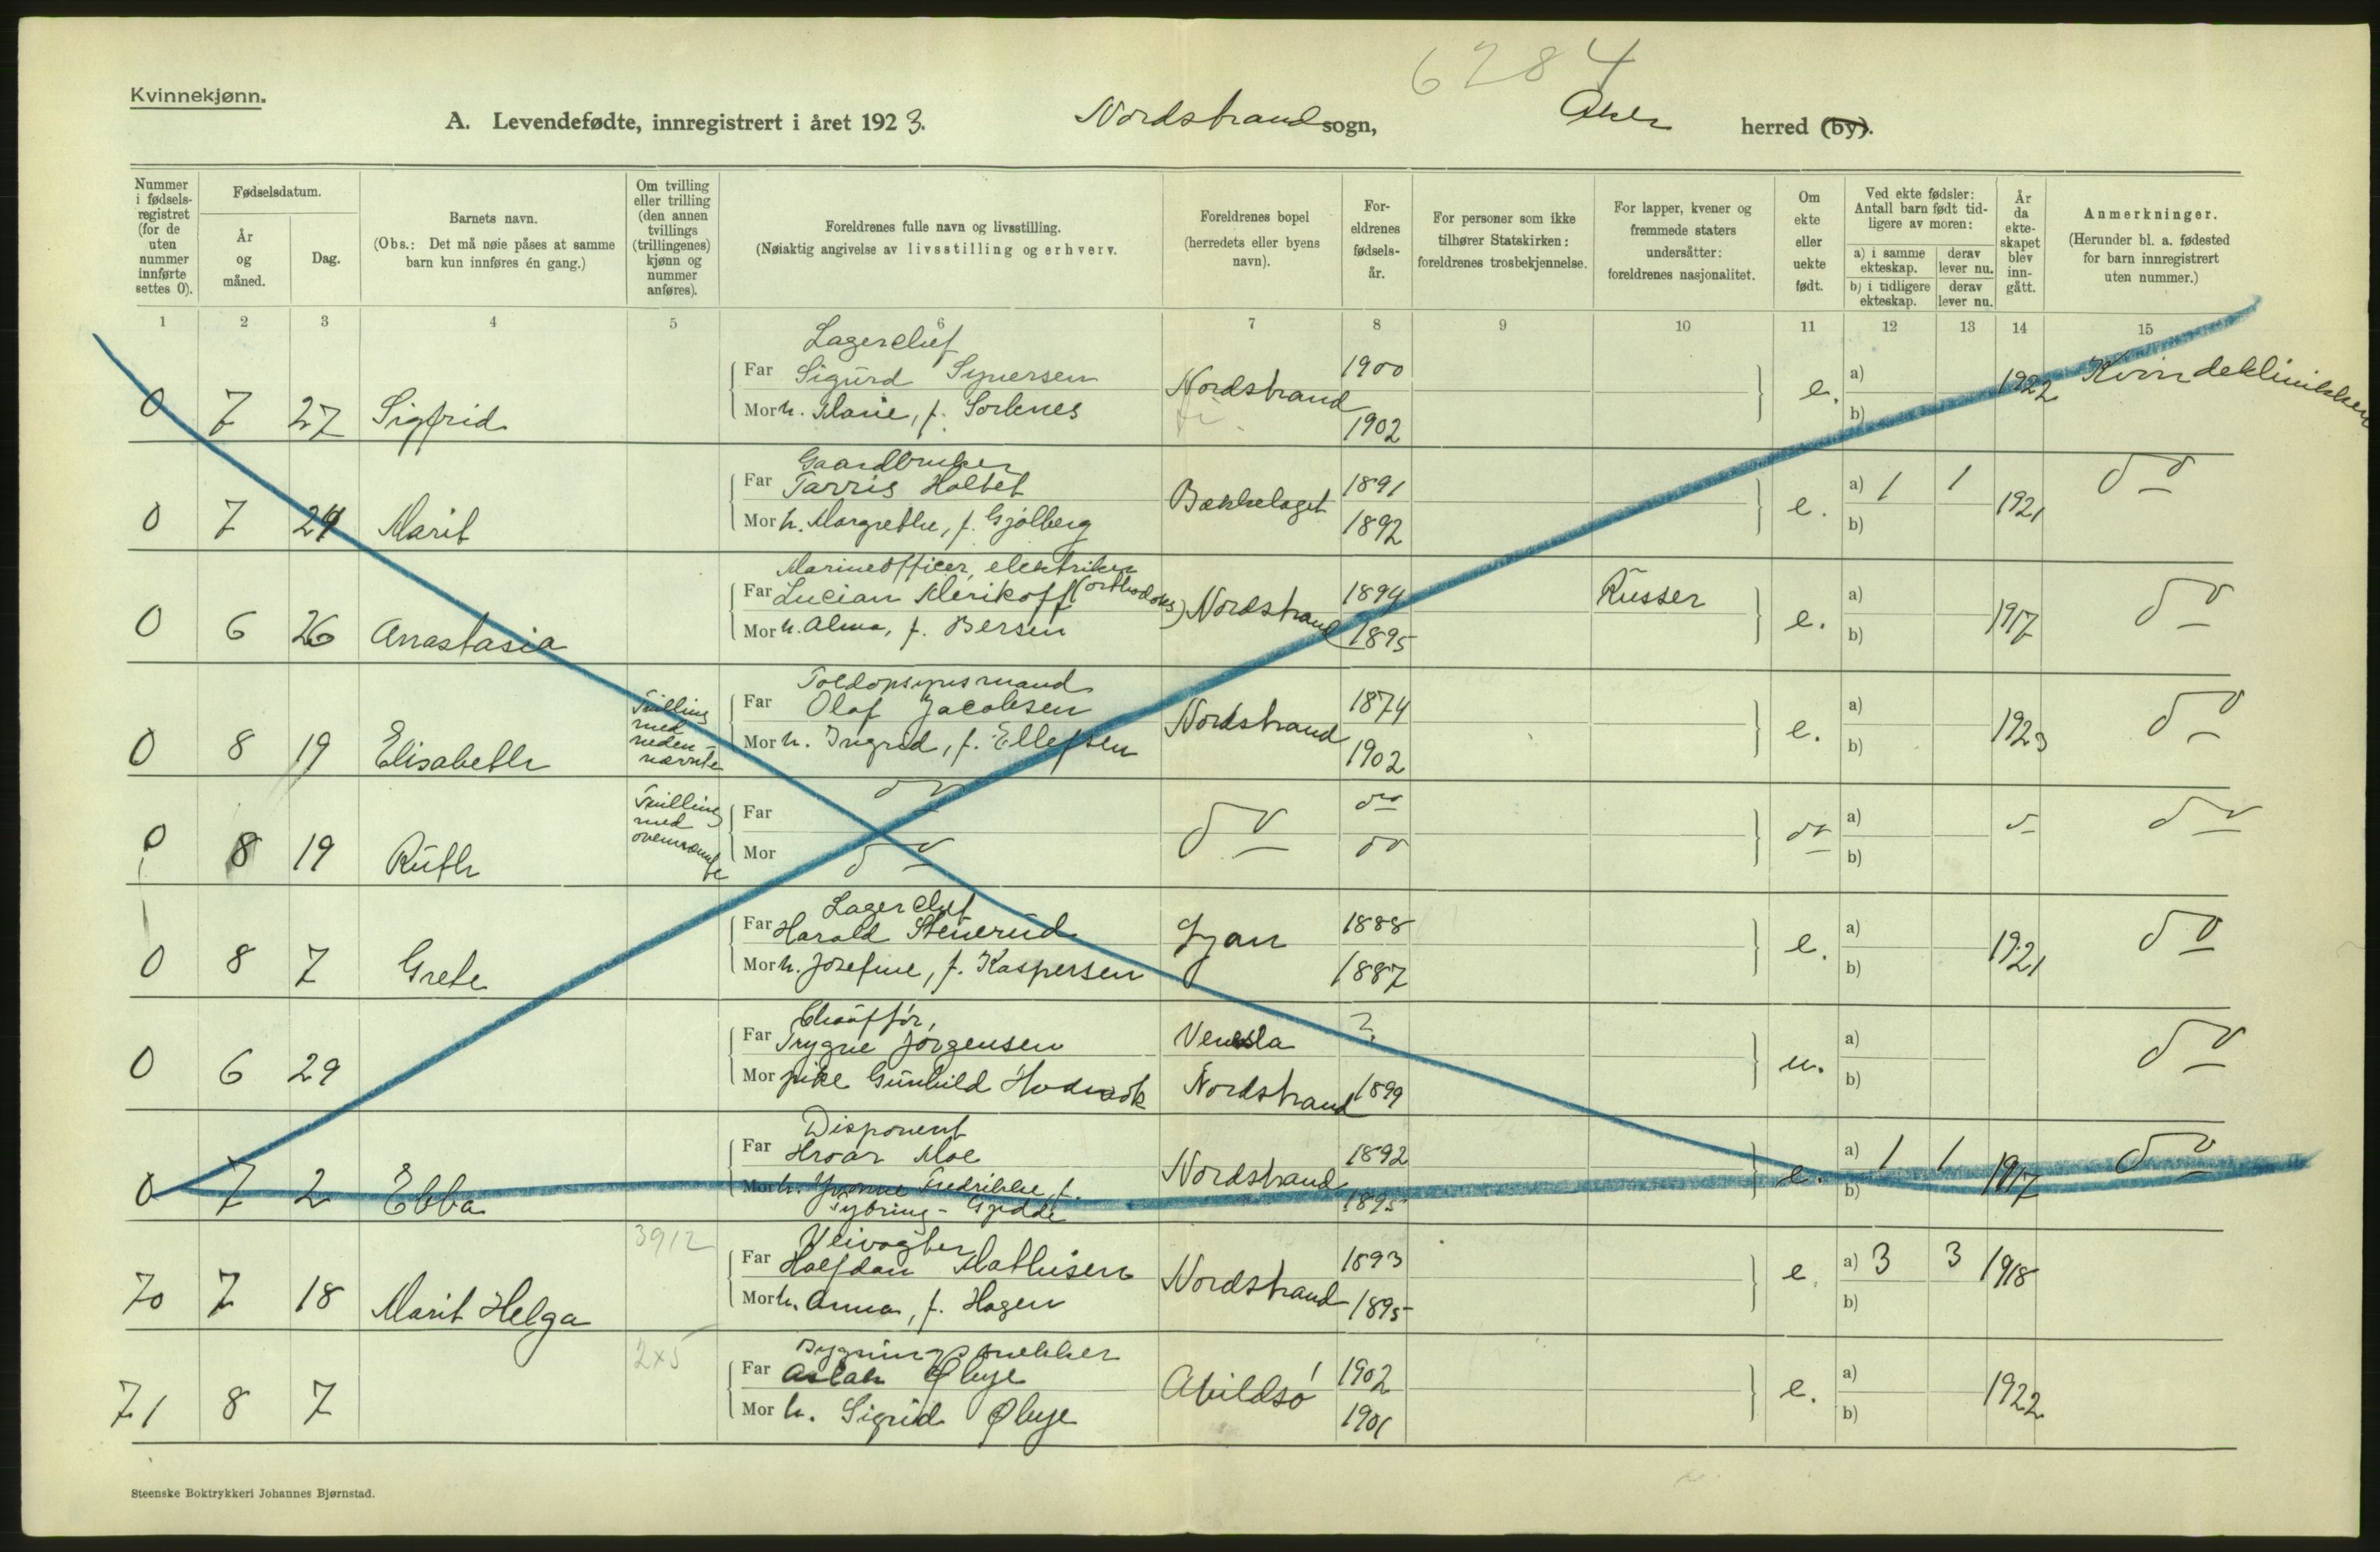 6284
Kvinnekjønn.
A. Levendefødte, innregistrert i året 1923. Nordstrand sogn, Aker herred (by).
Nummer i fødsels-registret (for de uten nummer innførte settes 0).
Fødselsdatum.
År og måned.
Dag.
Barnets navn.
(Obs.: Det må nøie påses at samme barn kun innføres én gang.)
Om tvilling eller trilling (den annen tvillings (trillingenes) kjønn og nummer anføres).
Foreldrenes fulle navn og livsstilling.
(Nøiaktig angivelse av livsstilling og erhverv.
Foreldrenes bopel (herredets eller byens navn).
For-eldrenes fødsels-år.
For personer som ikke tilhører Statskirken: foreldrenes trosbekjennelse.
For lapper, kvener og fremmede staters undersåtter: foreldrenes nasjonalitet.
Om ekte eller uekte født.
Ved ekte fødsler: Antall barn født tid-ligere av moren:
a) i samme ekteskap.
derav lever nu.
b) i tidligere ekteskap.
derav lever nu.
År da ekte-skapet blev inn-gått.
Anmerkninger.
(Herunder bl. a. fødested for barn innregistrert uten nummer.)
1 2 3 4 5 6 7 8 9 10 11 12 13 14 15
Lagerchef
Far Sigurd Syversen 1900 a)
0 7 27 Sigfrid Mor h. Marie, f. Sorknes Nordstrand 1902 e. b) 1922 Kvindeklinikken
Gaardbruker
Far Tarris Holtet 1891 a) 1 1
0 7 29 Marit Mor h. Margrethe, f. Gjølberg Bækkelaget 1892 e. b) 1921 do
Marineofficer, elektriker
Far Lucian Merikoff (orthodoks) 1894 Russer a)
0 6 26 Anastasia Mor h. Alma, f. Bersen Nordstrand 1895 e. b) 1917 do
Toldopsynsmand
Far Olaf Jacobsen 1874 a)
0 8 19 Elisabeth Tvilling med neden-nævnte Mor h. Ingrid, f. Ellefsen Nordstrand 1902 e. b) 1923 do
Far do do a)
0 8 19 Ruth Tvilling med ovennævnte Mor do do do do b) do do
Lagerchef
Far Harald Stenerud 1888 a)
0 8 7 Grete Mor h. Josefine, f. Kaspersen Ljan 1887 e. b) 1921 do
Chauffør,
Far Trygve Jørgensen Venesla ? a)
0 6 29 Mor pike Gunhild Nordstrand 1899 u. b) do
Disponent
Far Hroar Moe 1892 a) 1 1
0 7 2 Ebba Mor h. Yvonne Fredrikke, f. Nordstrand 1895 e. b) 1917 do
Sybring - Gjedde
3912 Veivogter
Far Halfdan Mathisen 1893 a) 3 3
70 7 18 Marit Helga Mor h. Anna, f. Hagen Nordstrand 1895 e. b) 1918
2x5 Bygningssnekker
Far Aslak Øbye 1902 a)
71 8 7 Mor h. Sigrid Øbye Abildsø 1901 e. b) 1922
Steenske Boktrykkeri Johannes Bjørnstad.